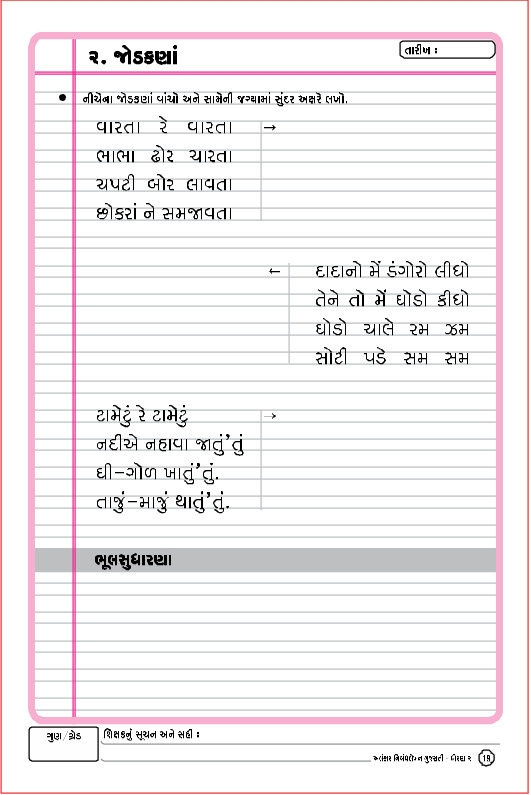 ૨. જોડકણાં
તારીખ :
● નીચેના જોડકણાં વાંચો અને સામેની જગ્યામાં સુંદર અક્ષરે લખો.
વારતા રે વારતા →
ભાભા ઢોર ચારતા
ચપટી બોર લાવતા
છોકરાં ને સમજાવતા
← દાદાનો મેં ડંગોરો લીધો
તેને તો મેં ઘોડો કીધો
ઘોડો ચાલે રમ ઝમ
સોટી પડે સમ સમ
ટામેટું રે ટામેટું →
નદીએ નહાવા જાતું’તું
ઘી-ગોળ ખાતું’તું.
તાજું-માજું થાતું’તું.
ભૂલસુધારણા
ગુણ/ગ્રેડ
શિક્ષકનું સૂચન અને સહી :
અલંકાર નિબંધલેખન ગુજરાતી - ધોરણ ૨ 19